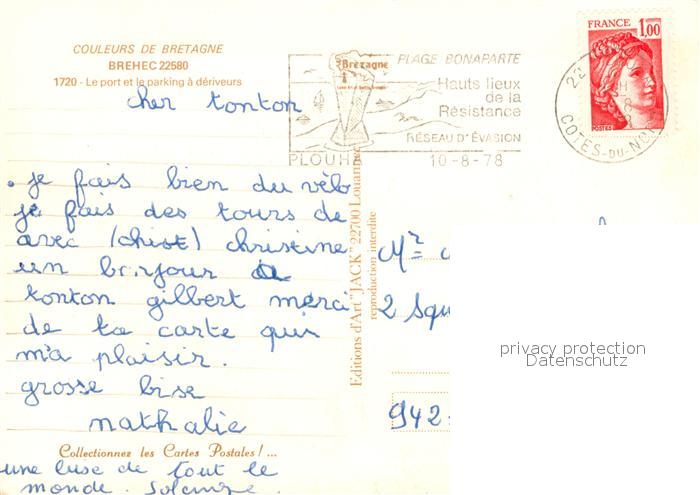 COULEURS DE BRETAGNE
BREHEC 22580
1720 - Le port et le parking à dériveurs
cher tonton
je fais bien du vélo
je fais des tours de
avec (chist) christine
un bonjour à
tonton gilbert merci
de ta carte qui
m'a plaisir.
grosse bise
nathalie
Collectionnez les Cartes Postales !...
une bise de tout le
monde. Solange.
Editions d'Art "JACK" 22700 Louannec
reproduction interdite
Bretagne
PLOUHA
PLAGE BONAPARTE
Hauts lieux
de la
Résistance
RÉSEAU D'ÉVASION
10-8-78
FRANCE 1,00
POSTES
22
COTES-DU-NORD
Mr
2 Squ
942
privacy protection
Datenschutz